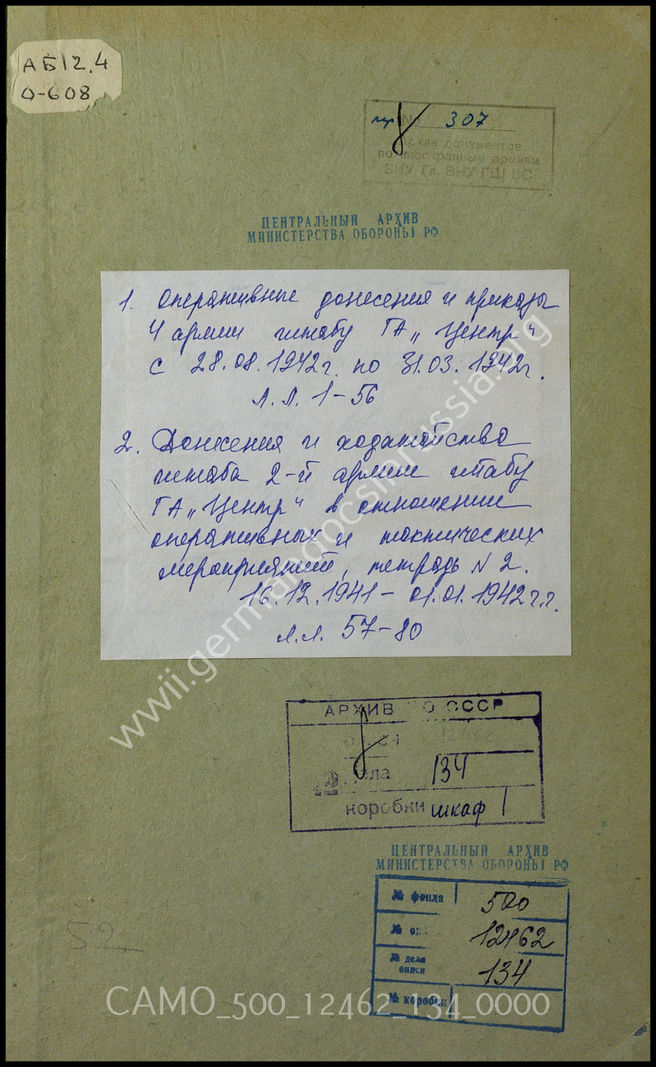 АБ12.4
О-608
№ 307
Архив документов
по иностранным армиям
ВНУ Гл. ВНУ ГШ ВС
ЦЕНТРАЛЬНЫЙ АРХИВ
МИНИСТЕРСТВА ОБОРОНЫ РФ
1. Оперативные донесения и приказы
4 армии штабу ГА „Центр"
с 28.08.1942г. по 31.03.1942г.
Л.Л. 1-56
2. Донесения и ходатайства
штаба 2-й армии штабу
ГА „Центр" в отношении
оперативных и тактических
мероприятий, тетрадь N 2.
16.12.1941 - 01.01.1942г.г.
Л.Л. 57-80
АРХИВ МО СССР
12462
дела 134
коробки шкаф 1
ЦЕНТРАЛЬНЫЙ АРХИВ
МИНИСТЕРСТВА ОБОРОНЫ РФ
№ фонда 500
№ оп. 12462
№ дела описи 134
№ коробки
52
CAMO_500_12462_134_0000
wwii.germandocsinrussia.org